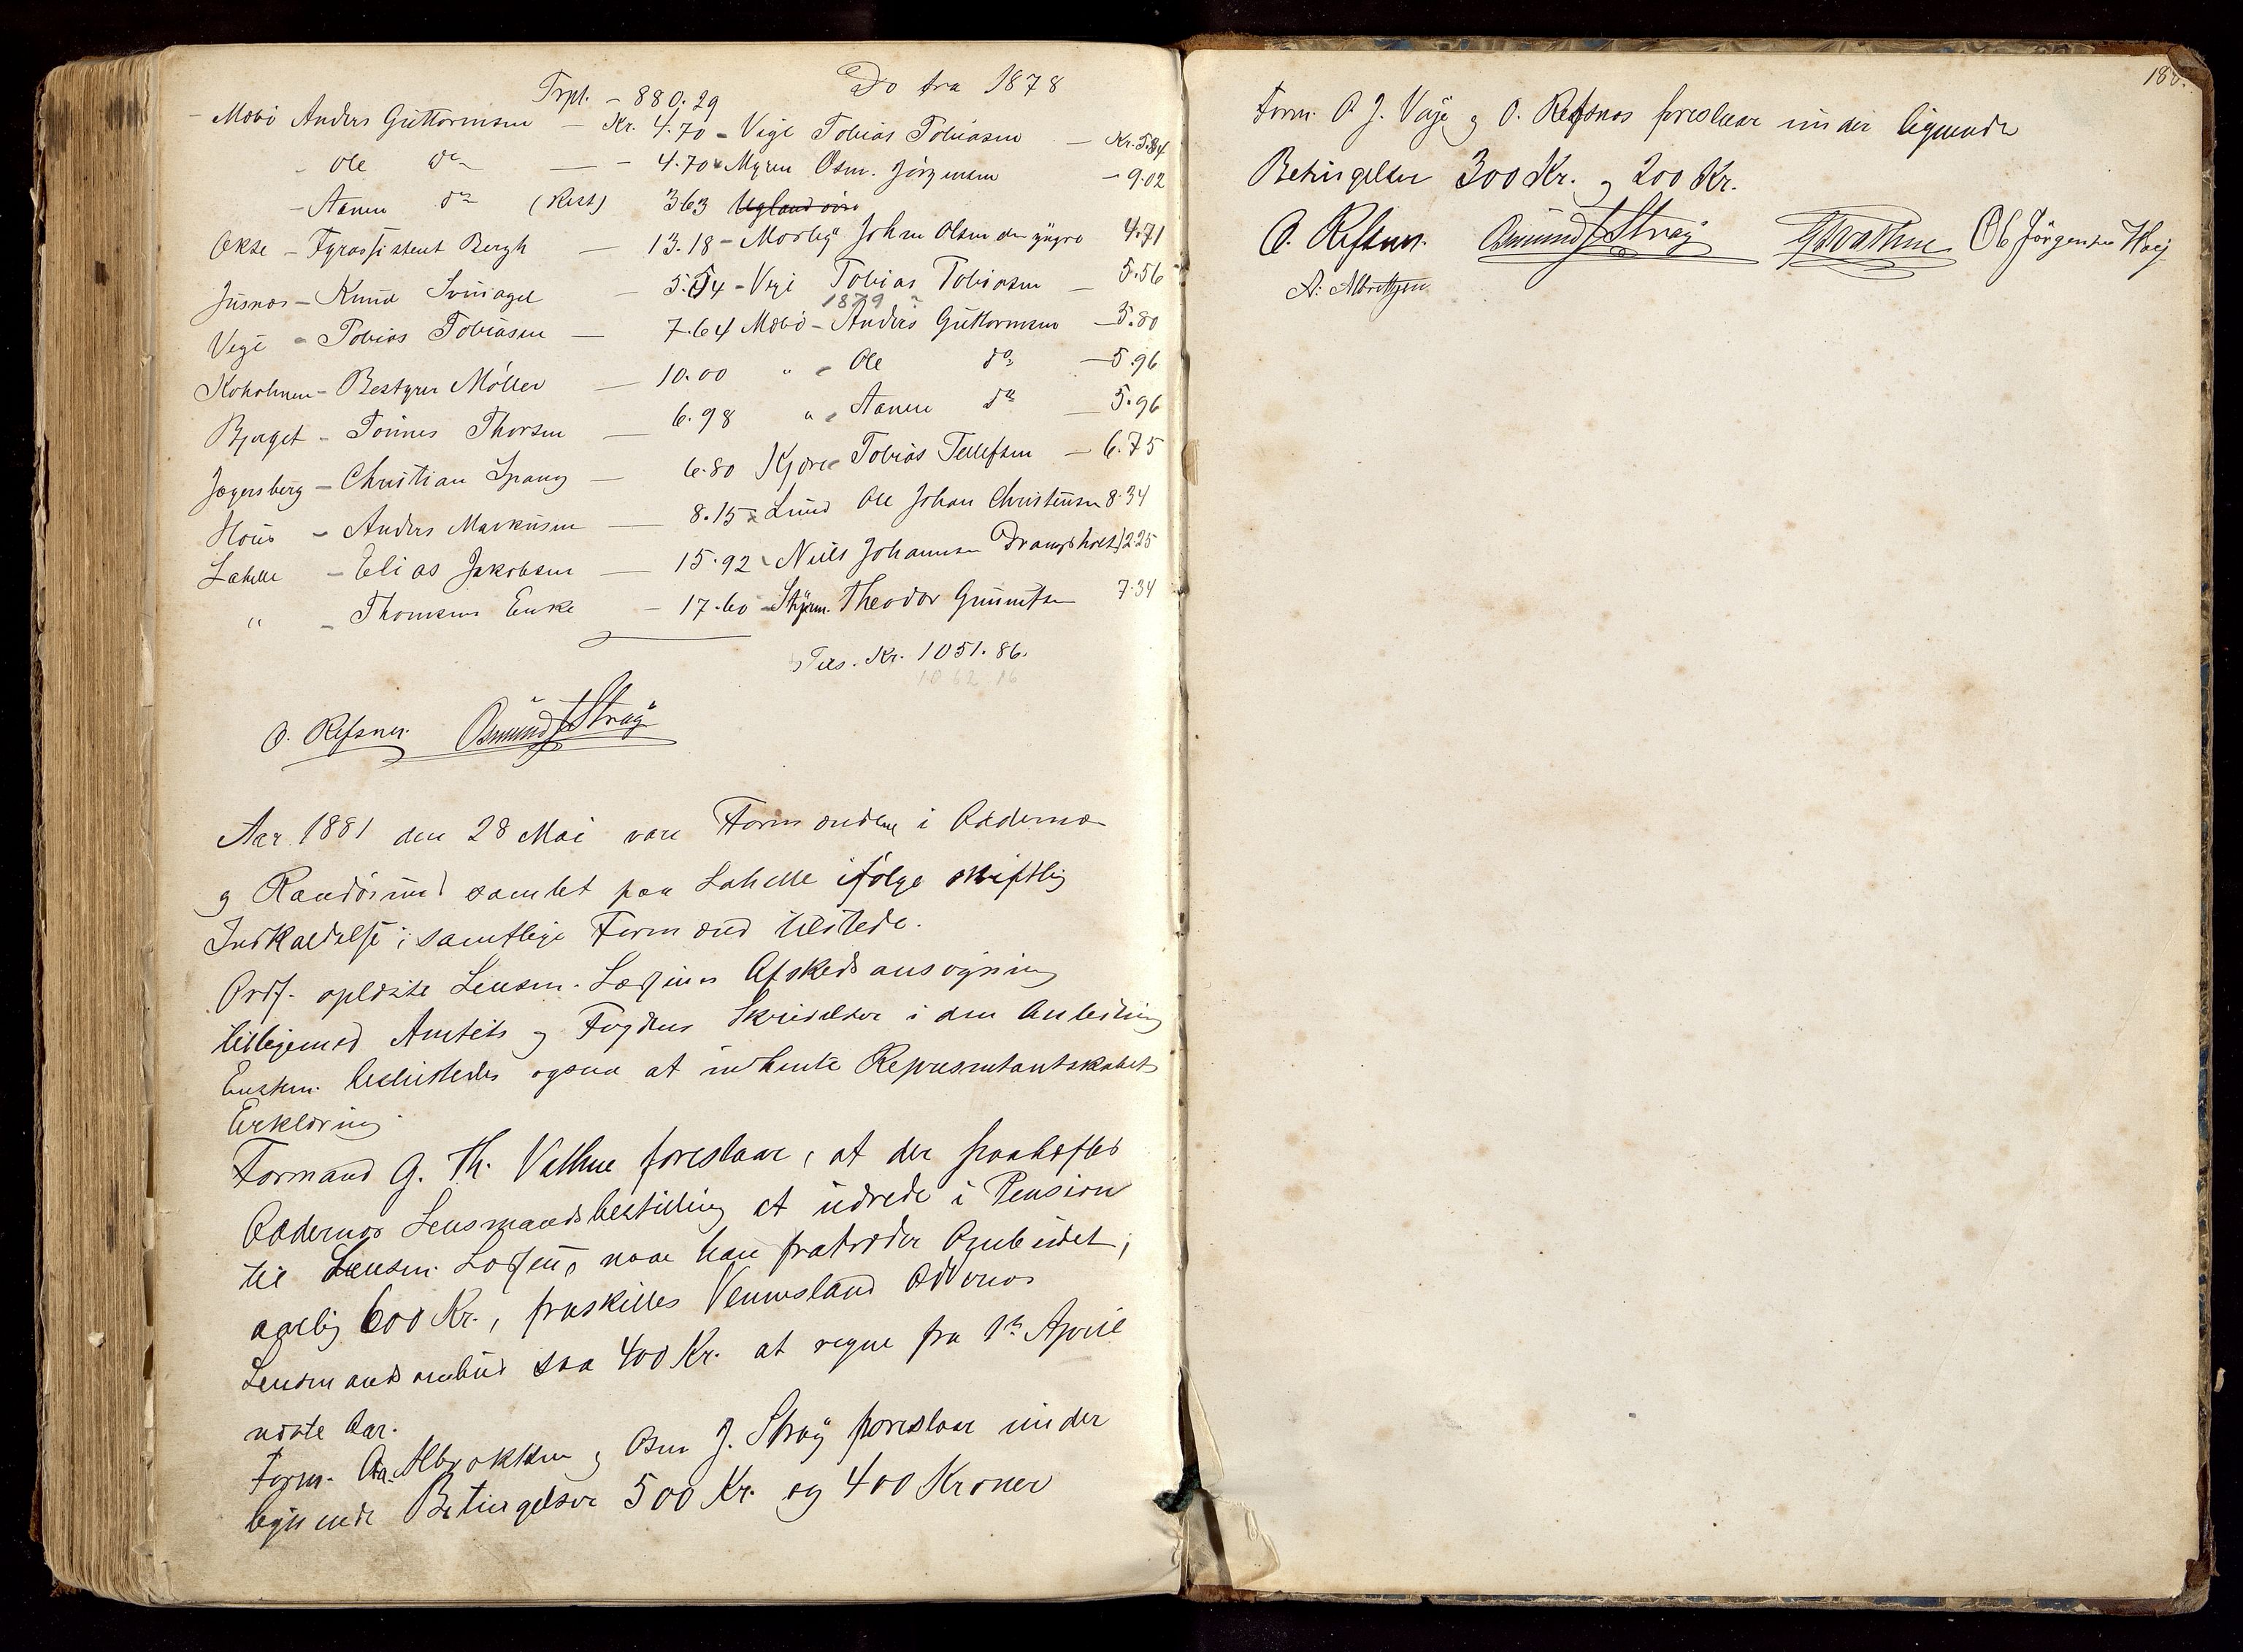 Trpt. - 880.29
Do fra 1878
- Mæbö Anders Guttormsen - Kr. 4.70 - Vige Tobias Tobiasen - Kr. 5.84
- Ole do - 4.70 - Myren Osm. Jörgensen - 9.02
- Aanen do (Rest) 363 Ugland
Okse - Fyrassistent Bergh - 13.18 - Mosby Johan Olsen den yngre 4.71
Jusnæs - Knud Svinagel - 5.54 - Vige Tobias Tobiasen - 5.56
1879
Vige - Tobias Tobiasen - 7.64 Mæbö - Anders Guttormsen - 5.80
Kokolmen - Bestyrer Möller - 10.00 " - Ole do - 5.96
Bjaaget - Tönnes Thorsen - 6.98 " - Aanen do - 5.96
Jægersberg - Christian Spang - 6.80 Kjære Tobias Tellefsen - 6.75
Hous - Anders Markusen - 8.15 - Lund Ole Johan Christensen 8.34
Lahelle - Elias Jakobsen - 15.92 - Niels Johannsen Drangsholt 12.25
" - Thomsens Enke - 17.60 - Styrm. Theodor Gunnufsen 7.34
Tils. Kr. 1051.86.
1062.16
O. Refsnes. Osmund J Stray
Aar 1881 den 28 Mai vare Formændene i Oddernæs
og Randösund samlet paa Lahelle ifölge skriftlig
Indkaldelse; samtlige Formænd tilstede.
Ordf. oplæste Lensm. Afskedsansögning
tilligemed Amtets og Fogdens Skrivelser i den Anledning
Enstem. besluttedes ogsaa at indhente Repræsentantskabets
Erklæring.
Formand G. Th. Vathne foreslaar, at der paaheftes
Oddernæs Lensmandsbestilling at udrede i Pension
til Lensm. naar han fratræder Ombudet,
aarlig 600 Kr., fraskilles Vennesland Oddernæs
Lensmandsombud saa 400 Kr. at regne fra 1ste April
næste Aar.
Form. Aa. Albrektsen og Osm J. Stray foreslaar under
lignende Betingelser 500 Kr. og 400 Kroner
188
Form. O. J. Vaje og O. Refsnæs foreslaar under lignende
Betingelser 300 Kr. og 200 Kr.
O. Refsnes. Osmund J Stray G Th Vathne Ole Jörgensen
A. Albretzen